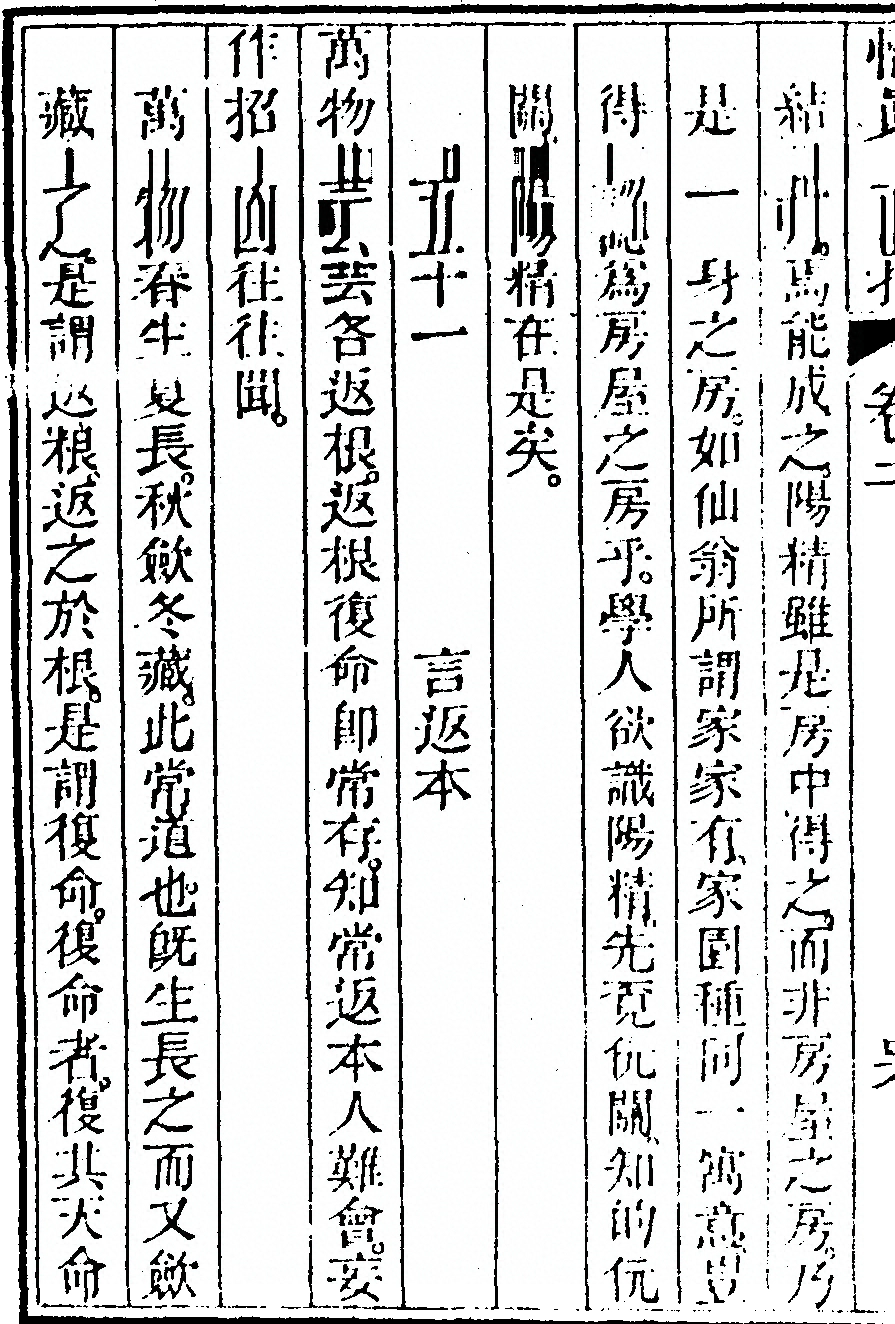 悟真直指 卷二
結丹。焉能成之。陽精雖是房中得之。而非房屋之房。乃
是一身之房。如仙翁所謂家家有、家園種同一寓意。豈
得認為房屋之房乎。學人欲識陽精、先覓仇關、知的仇
關、陽精在是矣。
五十一 言返本
萬物芸芸各返根。返根復命即常存。知常返本人難會。妄
作招凶往往聞。
萬物春生夏長。秋歛冬藏。此常道也。既生長之而又歛
藏之。是謂返根、返之於根。是謂復命。復命者。復其天命